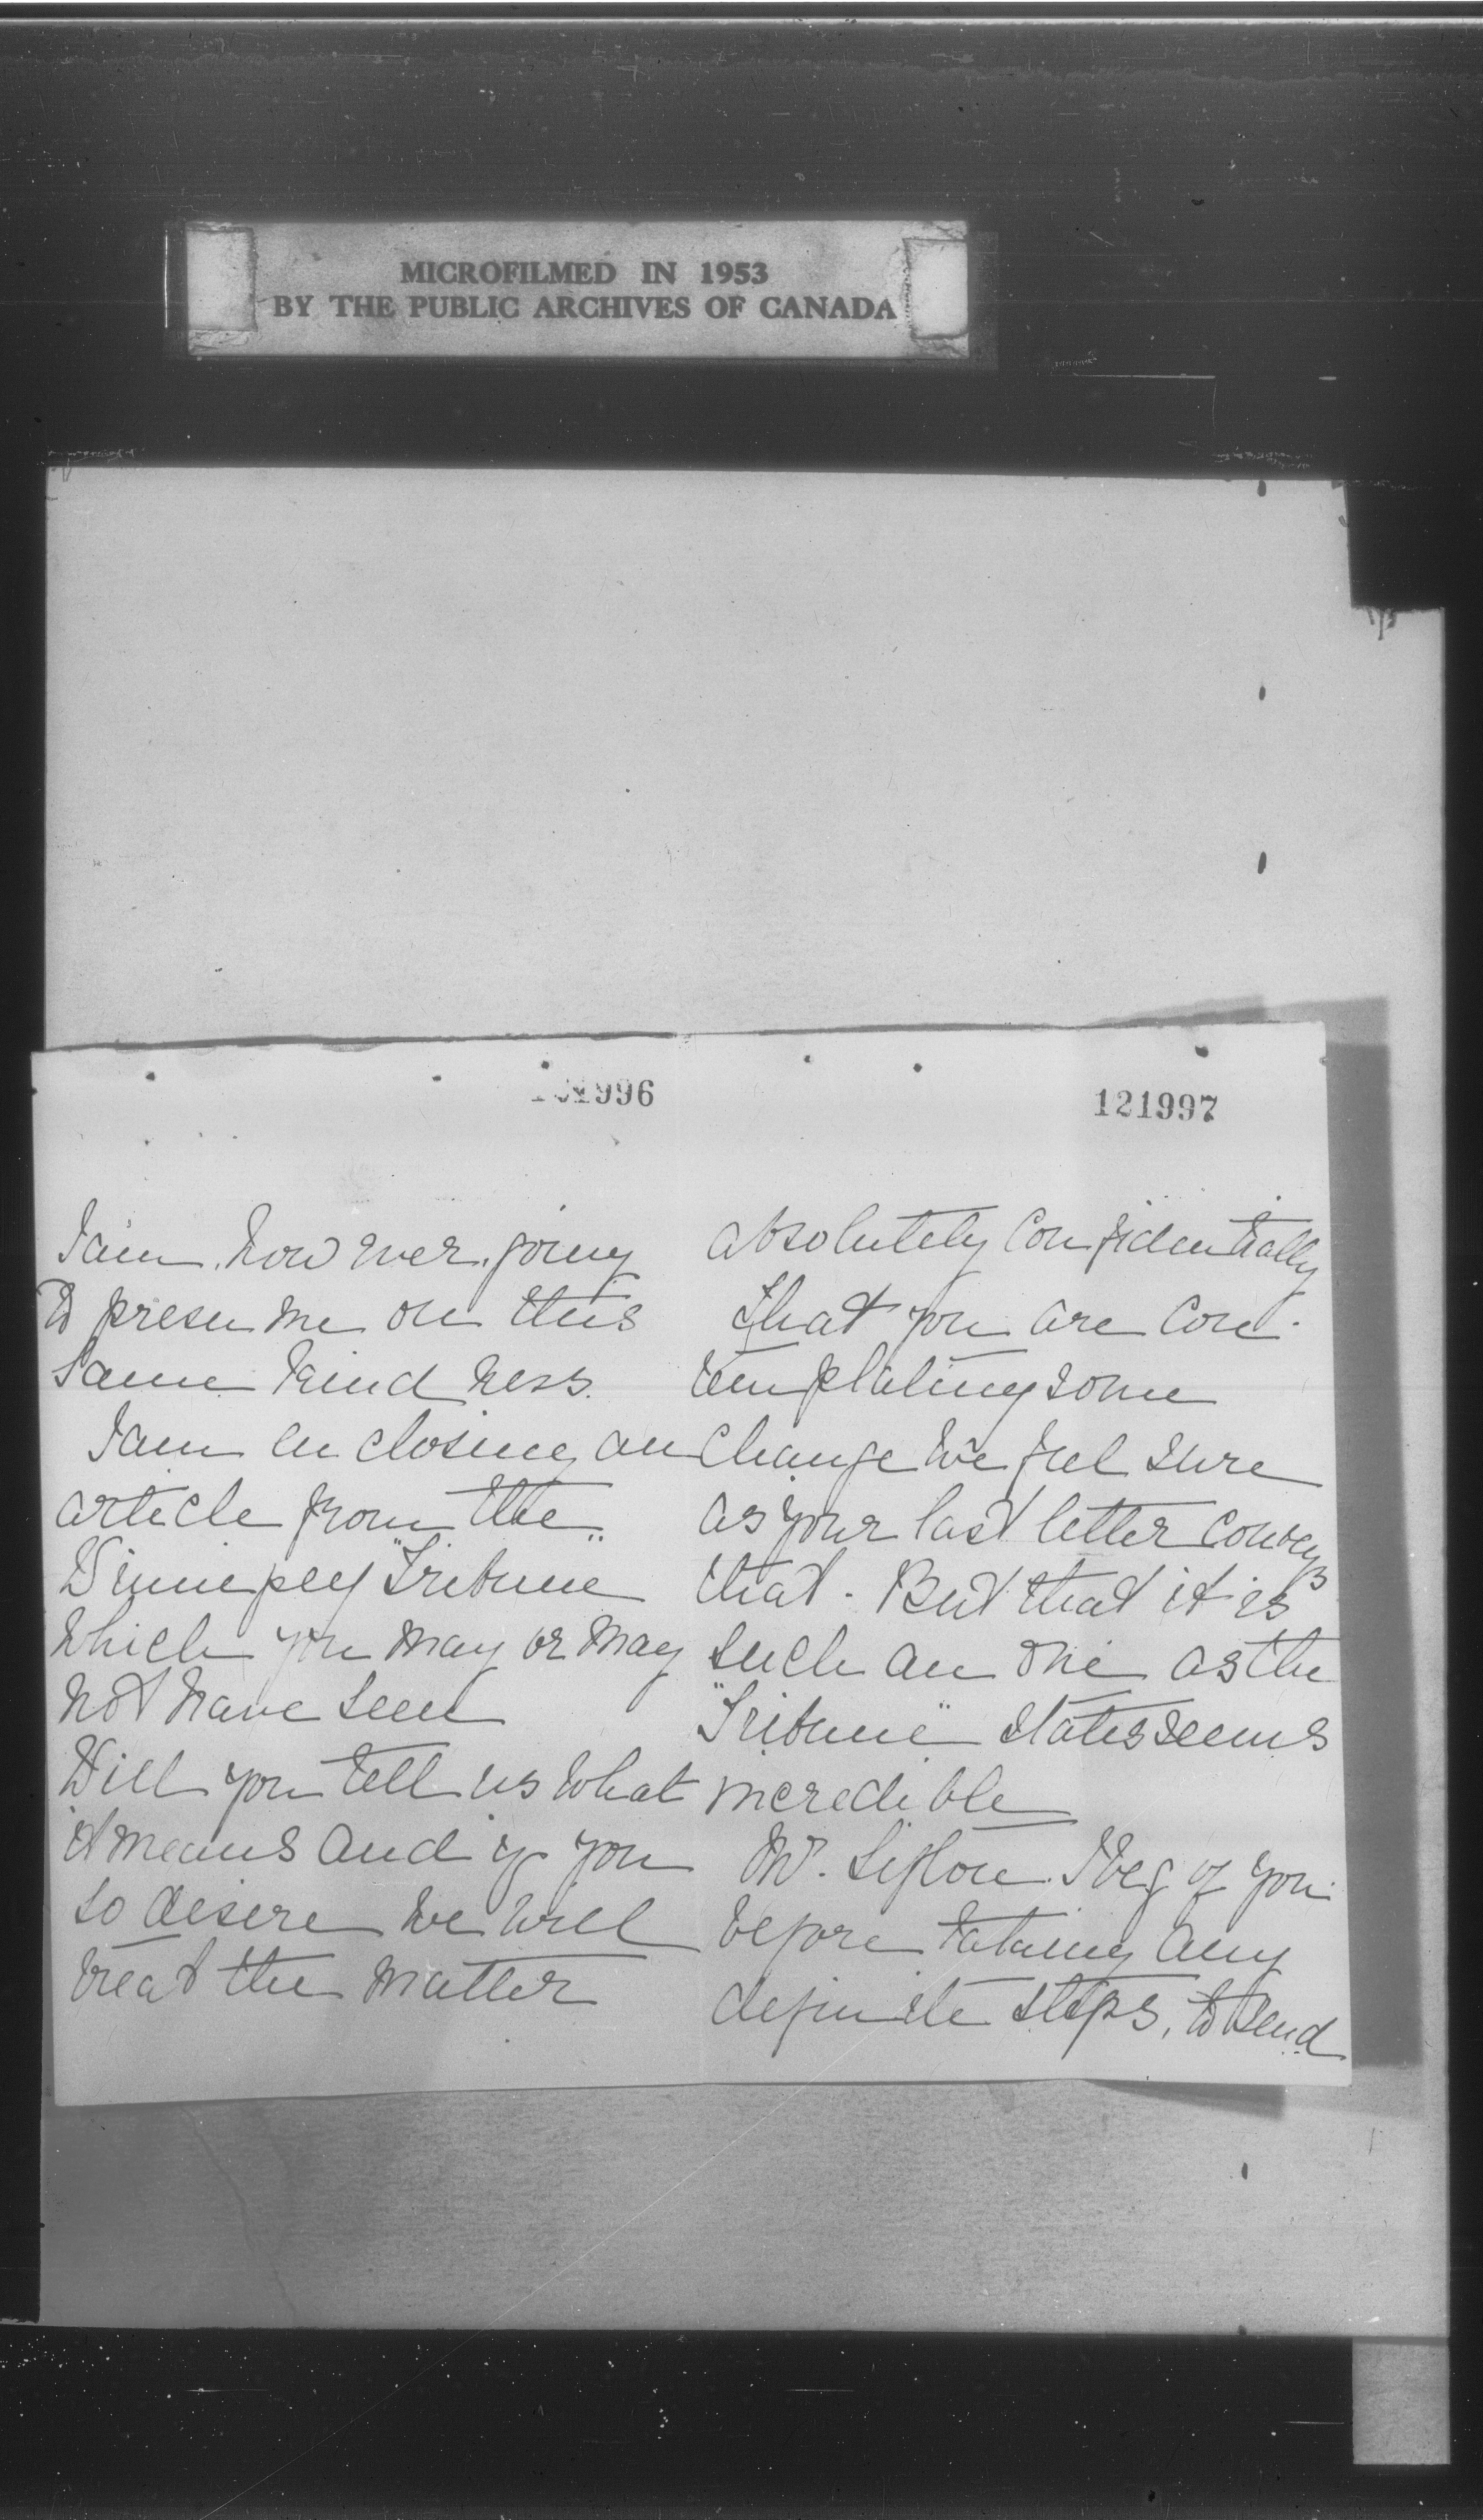 MICROFILMED IN 1953
BY THE PUBLIC ARCHIVES OF CANADA
996
I am, however, going
to presume on this
same kindness.
I am enclosing an
article from the
Winnipeg "Tribune"
which you may or may
not have seen
Will you tell us what
it means and if you
so desire we will
treat the matter
121997
absolutely confidentially
That you are con-
templating some
change we feel sure
as your last letter conveys
that. But that it is
such an one as the
"Tribune" states seems
incredible
Mr. Sifton I beg of you
before taking any
definite steps, to send